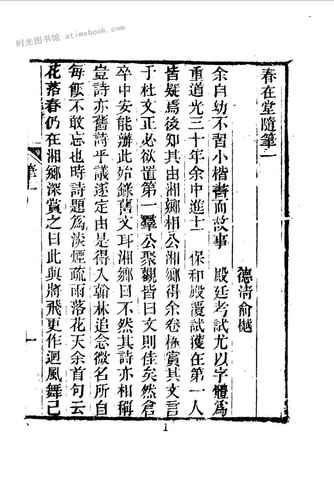 时光图书馆 www.atimebook.com
春在堂隨筆一
德清俞樾
余自幼不習小楷書而故事 殿廷考試尤以字體爲
重道光三十年余中進士 保和殿覆試獲在第一人
皆疑焉後知其由湘鄉相公湘鄉得余卷極賞其文言
于杜文正必欲置第一羣公聚觀皆曰文則佳矣然倉
卒中安能辦此殆錄舊文耳湘鄉曰不然其詩亦相稱
豈詩亦舊詩乎議遂定由是得入翰林追念微名所自
每飯不敢忘也時詩題爲淡煙疏雨落花天余首句云
花落春仍在湘鄉深賞之曰此與將飛更作迴風舞已
筆一
一
1